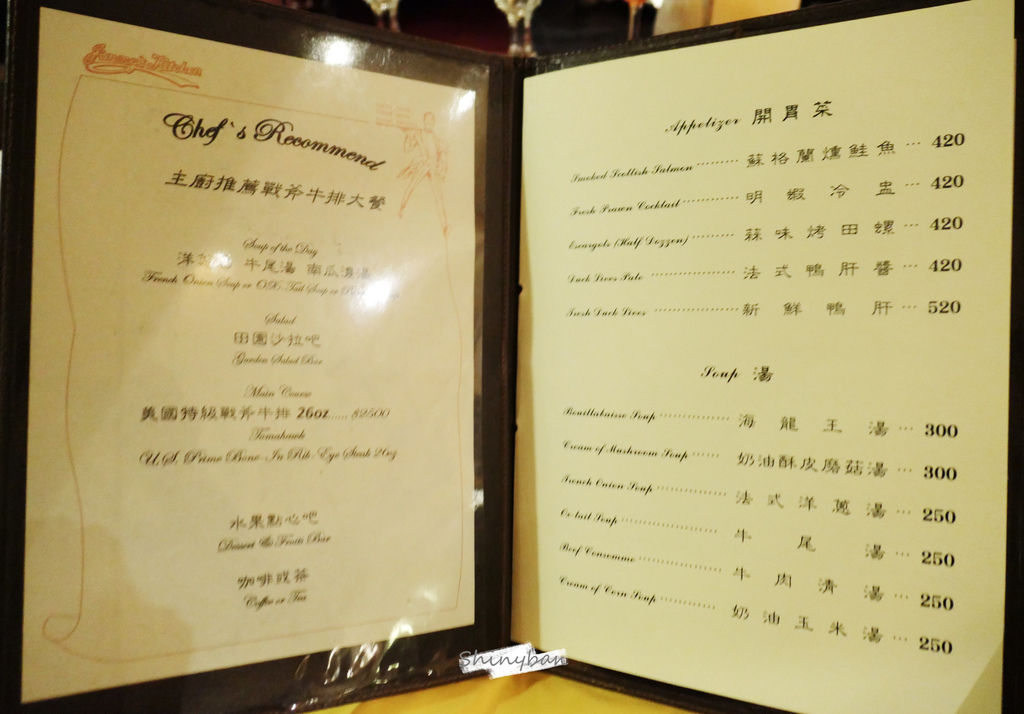 Jimmy's Kitchen
Chef`s Recommend
主廚推薦戰斧牛排大餐
Soup of the Day
牛尾湯 南瓜濃湯
French Onion Soup or OX-Tail Soup or
Salad
田園沙拉吧
Garden Salad Bar
Main Course
美國特級戰斧牛排 26oz...... $2500
Tomahawk
U.S. Prime Bone-In Rib-Eye Steak 26oz
水果點心吧
Dessert & Fruits Bar
咖啡或茶
Coffee or Tea
Appetizer 開胃菜
Smoked Scottish Salmon ········· 蘇格蘭燻鮭魚 ··· 420
Fresh Prawn Cocktail ········· 明蝦冷盅 ··· 420
Escargots (Half Dozzen) ········· 蒜味烤田螺 ··· 420
Duck Liver Pate ········· 法式鴨肝醬 ··· 420
Fresh Duck Liver ········· 新鮮鴨肝 ··· 520
Soup 湯
Bouillabaisse Soup ········· 海龍王湯 ··· 300
Cream of Mushroom Soup ······ 奶油酥皮蘑菇湯 ··· 300
French Onion Soup ········· 法式洋蔥湯 ··· 250
Ox-tail Soup ········· 牛尾湯 ··· 250
Beef Consomme ········· 牛肉清湯 ··· 250
Cream of Corn Soup ········· 奶油玉米湯 ··· 250
Shinyban